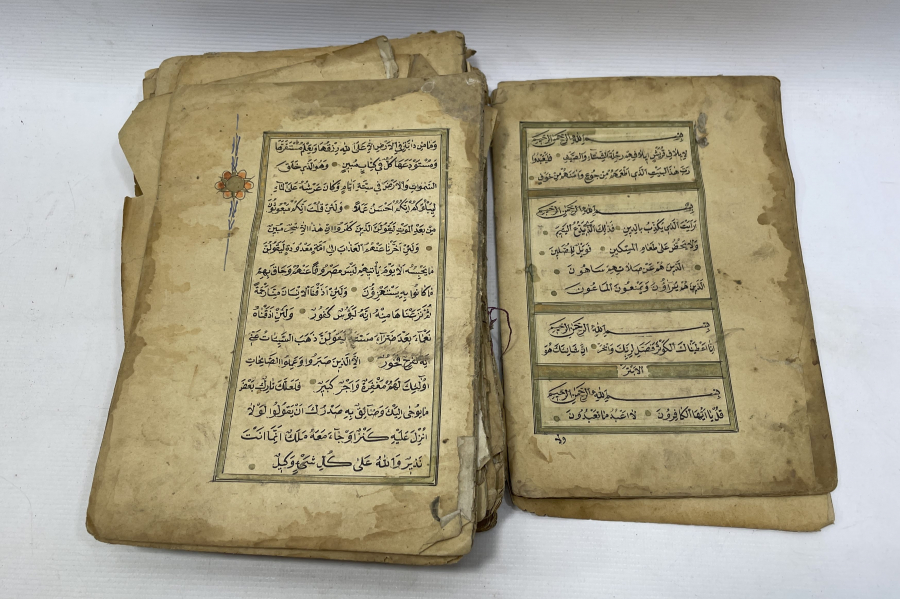 بسم الله الرحمن الرحيم
لايلاف قريش ايلافهم رحلة الشتاء والصيف فليعبدوا
رب هذا البيت الذي اطعمهم من جوع وامنهم من خوف
بسم الله الرحمن الرحيم
ارايت الذي يكذب بالدين فذلك الذي يدع اليتيم
ولا يحض على طعام المسكين فويل للمصلين
الذين هم عن صلاتهم ساهون
الذين هم يراؤن ويمنعون الماعون
بسم الله الرحمن الرحيم
انا اعطيناك الكوثر فصل لربك وانحر ان شانئك هو
الابتر
بسم الله الرحمن الرحيم
قل يا ايها الكافرون لا اعبد ما تعبدون
ولا
وما من دابة في الارض الا على الله رزقها ويعلم مستقرها
ومستودعها كل في كتاب مبين وهو الذي خلق
السموات والارض في ستة ايام وكان عرشه على الماء
ليبلوكم ايكم احسن عملا ولئن قلت انكم مبعوثون
من بعد الموت ليقولن الذين كفروا ان هذا الا سحر مبين
ولئن اخرنا عنهم العذاب الى امة معدودة ليقولن
ما يحبسه الا يوم ياتيهم ليس مصروفا عنهم وحاق بهم
ما كانوا به يستهزؤن ولئن اذقنا الانسان منا رحمة
ثم نزعناها منه انه ليؤس كفور ولئن اذقناه
نعماء بعد ضراء مسته ليقولن ذهب السيئات عني
انه لفرح فخور الا الذين صبروا وعملوا الصالحات
اولئك لهم مغفرة واجر كبير فلعلك تارك بعض
ما يوحى اليك وضائق به صدرك ان يقولوا لولا
انزل عليه كنز او جاء معه ملك انما انت
نذير والله على كل شئ وكيل